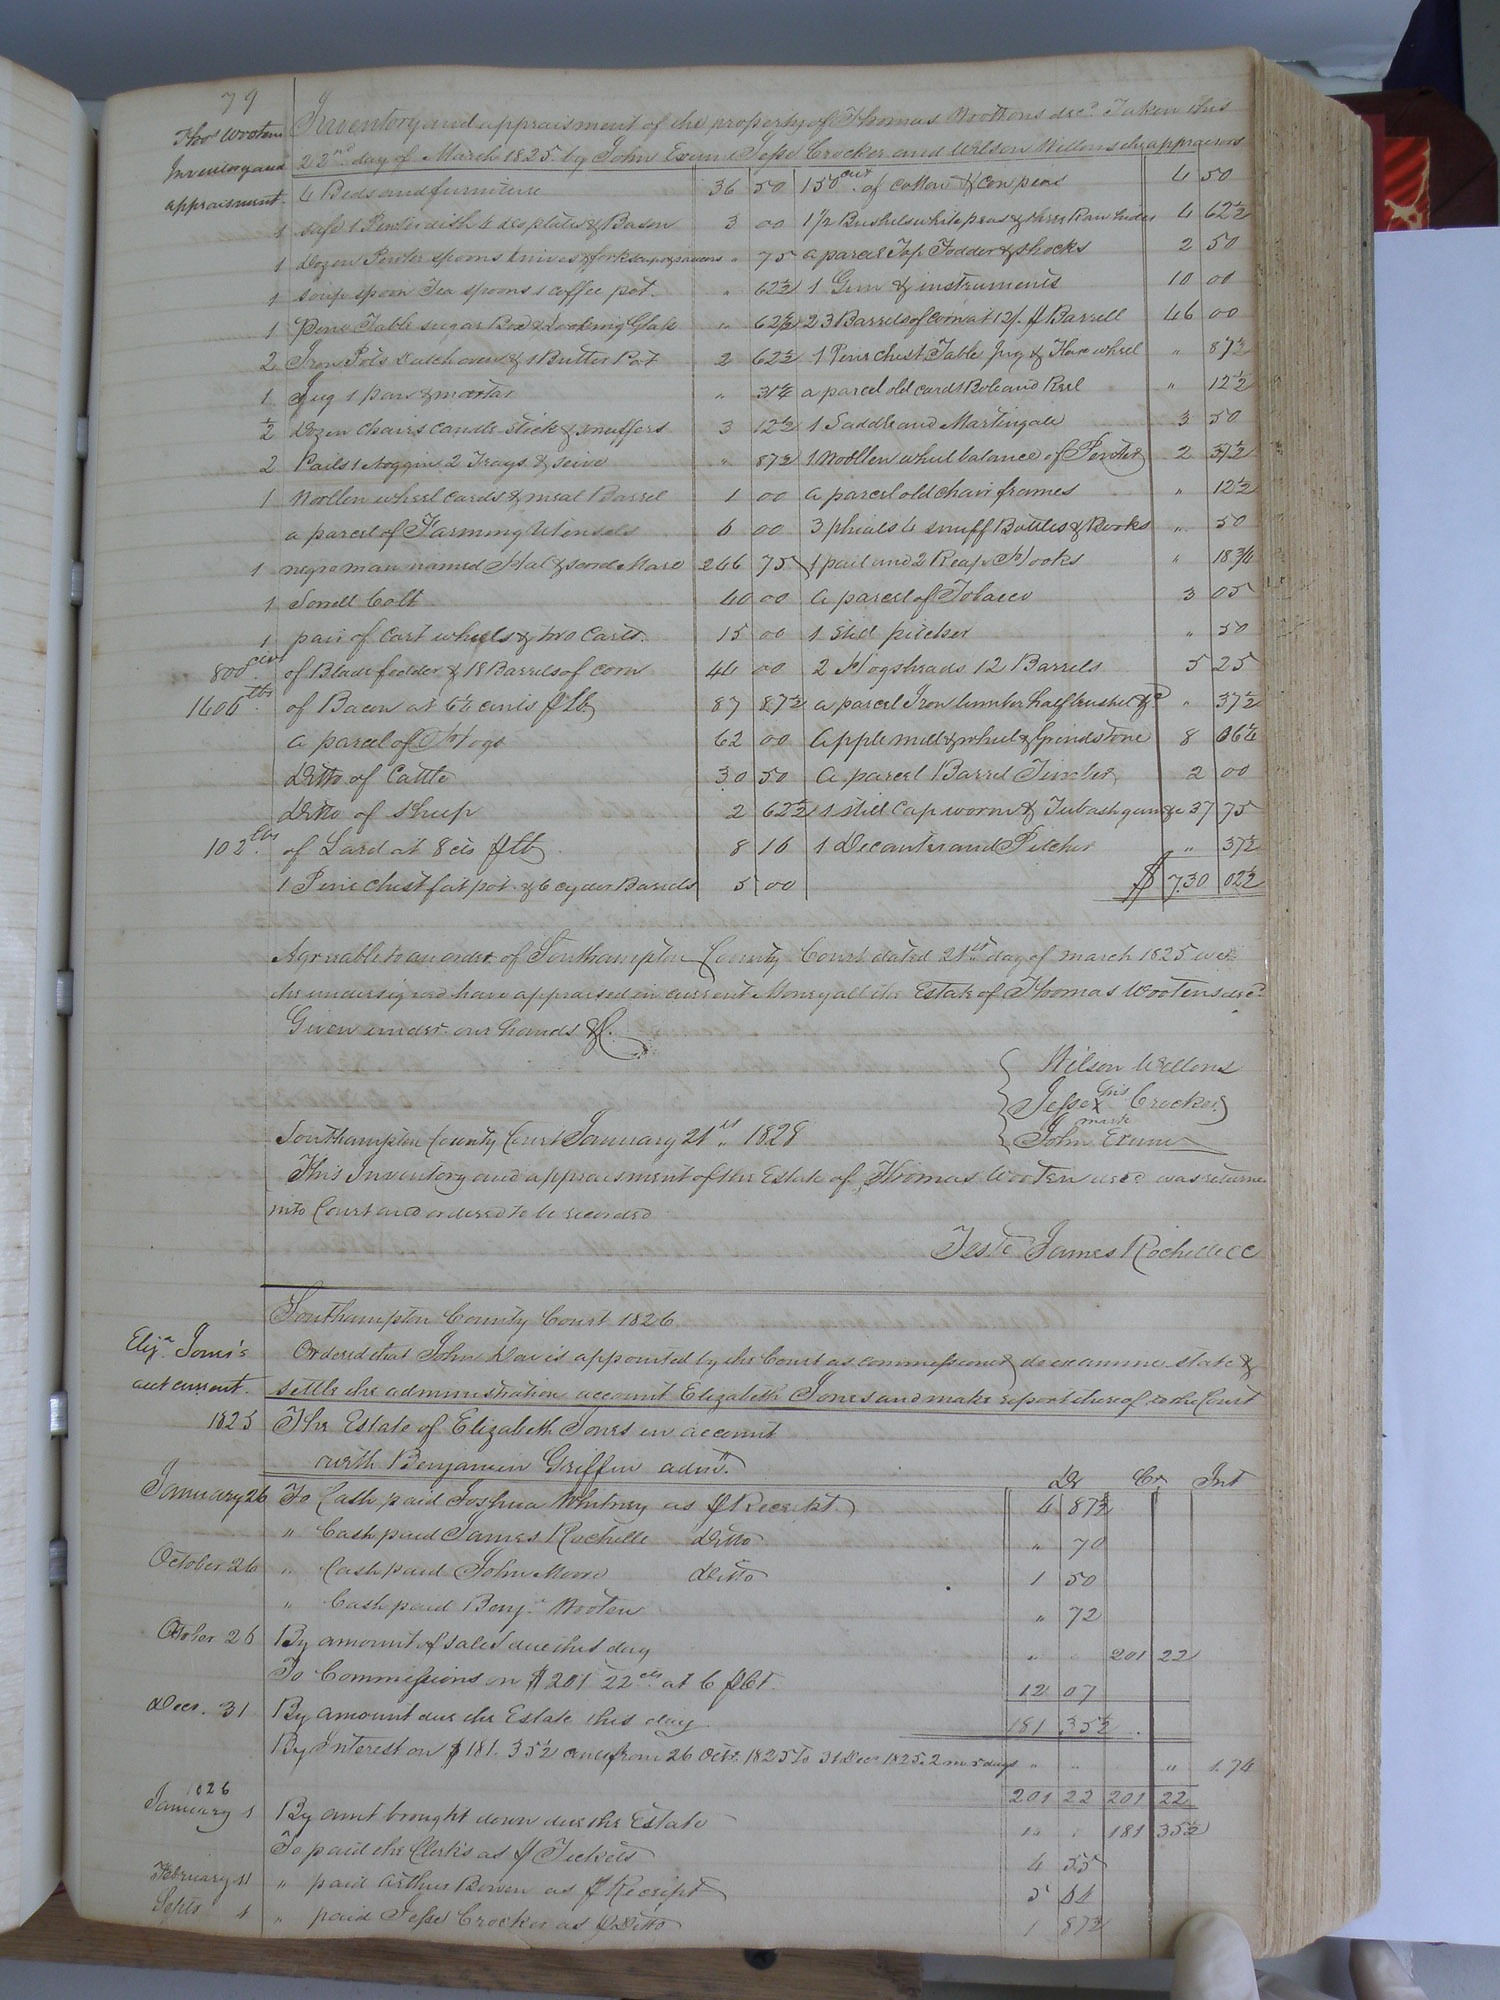 79
Thos Wootens Inventory and appraisment.
Inventory and appraisment of the property of Thomas Woottons decd Taken this
22nd day of March 1825 by John Exum Jesse Crocker and Wilson Wellons the appraisors
4 Beds and furniture 36 50
1 safe 1 Pewter dish 4 do plates & Bason 3 00
1 Dozen Pewter spoons knives & forks cups & saucers " 75
1 soup spoon Tea spoons 1 coffee pot " 62½
1 Pine Table sugar Box & Looking Glass " 62½
2 Iron Pots Dutch oven & 1 Butter Pot 2 62½
1 Jug 1 pan & mortar " 31¼
½ Dozen chairs candle stick & snuffers 3 12½
2 Pails 1 noggin 2 Trays & seive " 87½
1 Woollen wheel cards & meal Barrel 1 00
a parcel of Farming Utensels 6 00
1 negro man named Hal & sorrel Mare 246 75
1 Sorrell Colt 40 00
1 pair of Cart wheels & two Carts. 15 00
800 cwt of Blade fodder & 18 Barrels of corn 44 00
1406 lbs of Bacon at 6¼ cents ⅌ lb 87 87½
a parcel of Hogs 62 00
Ditto of Cattle 30 50
Ditto of sheep 2 62½
102 lbs of Lard at 8 cts ⅌ lb 8 16
1 Pine chest fat pot & 6 cyder Barrels 5 00
150 cwt of cotton & corn peas 4 50
1½ Bushels white peas & three Raw hides 4 62½
a parcel Top Fodder & shocks 2 50
1 Gun & instruments 10 00
23 Barrels of corn at 12/. ⅌ Barrell 46 00
1 Pine chest Table Jug & Flax wheel " 87½
a parcel old cards Bole and Reel " 12½
1 Saddle and Martingale 3 50
1 Woollen wheel balance of Pewter 2 37½
a parcel old chair frames " 12½
3 phials 4 snuff Bottles & Books " 50
1 pail and 2 Reap Hooks " 18¾
a parcel of Tobacco 3 05
1 Still pitcher " 50
2 Hogsheads 12 Barrels 5 25
a parcel Iron timber half bushel &c " 37½
Apple mill & wheel & Grindstone 8 06¼
a parcel Barrel Timber 2 00
1 still cap worm & Tub ash gum &c 37 75
1 Decanter and Pitcher " 37½
$ 730 02½
Agreeable to an order of Southampton County Court dated 21st day of march 1825 we
the undersigned have appraised in current Money all the Estate of Thomas Wootens decd
Given under our hands &c.
Wilson Wellons
Jesse his X mark Crocker
John Exum
Southampton County Court January 21st 1828
This Inventory and appraisment of the Estate of Thomas Wooten decd was returned
into Court and ordered to be recorded
Teste James Rochelle CC
Southampton County Court 1826
Eliza Jones's acct current.
Ordered that John Davis appointed by the Court as commissioner do examine state &
settle the administration account Elizabeth Jones and make report thereof to the Court
1825 The Estate of Elizabeth Jones in account
with Benjamin Griffin admr.
Dr Cr. Int
January 26 To Cash paid Joshua Whitney as ⅌ Receipt 4 87½
" Cash paid James Rochelle Ditto " 70
October 26 " Cash paid John Moore Ditto 1 50
" Cash paid Benj. Wooten " 72
October 26 By amount of sales due this day " " 201 22
To Commissions on $201 22 cts at 6 ⅌ Ct. 12 07
Decr. 31 By amount due the Estate this day 181 35½
By Interest on $181.35½ cents from 26 Octr. 1825 To 31 Decr 1825. 2 m 5 days " " " 1.74
201 22 201 22
1826
January 1 By amt brought down due the Estate " " 181 35½
To paid the Clerks as ⅌ Tickets 4 55
February 11 " paid Arthur Bowen as ⅌ Receipt 5 44
Septr 1 " paid Jesse Crocker as ⅌ Ditto 1 87½